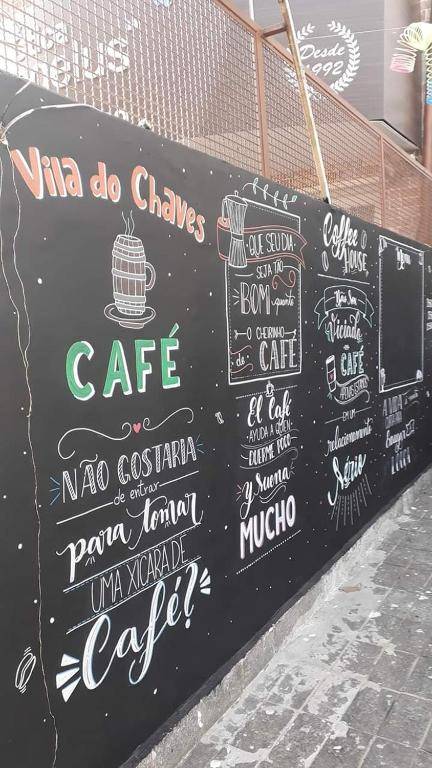 Desde
1992
Vila do Chaves
CAFÉ
NÃO GOSTARIA
de entrar
para tomar
UMA XICARA DE
Café?
QUE SEU DIA
SEJA TÃO
BOM quanto
O CHEIRINHO
de CAFÉ
El Café
AYUDA A QUIEN
DUERME POCO
y Suena
MUCHO
Coffee
HOUSE
Não Sou
Viciada
em CAFÉ
EM UM
relacionamento
Sério
Menu
A VIDA